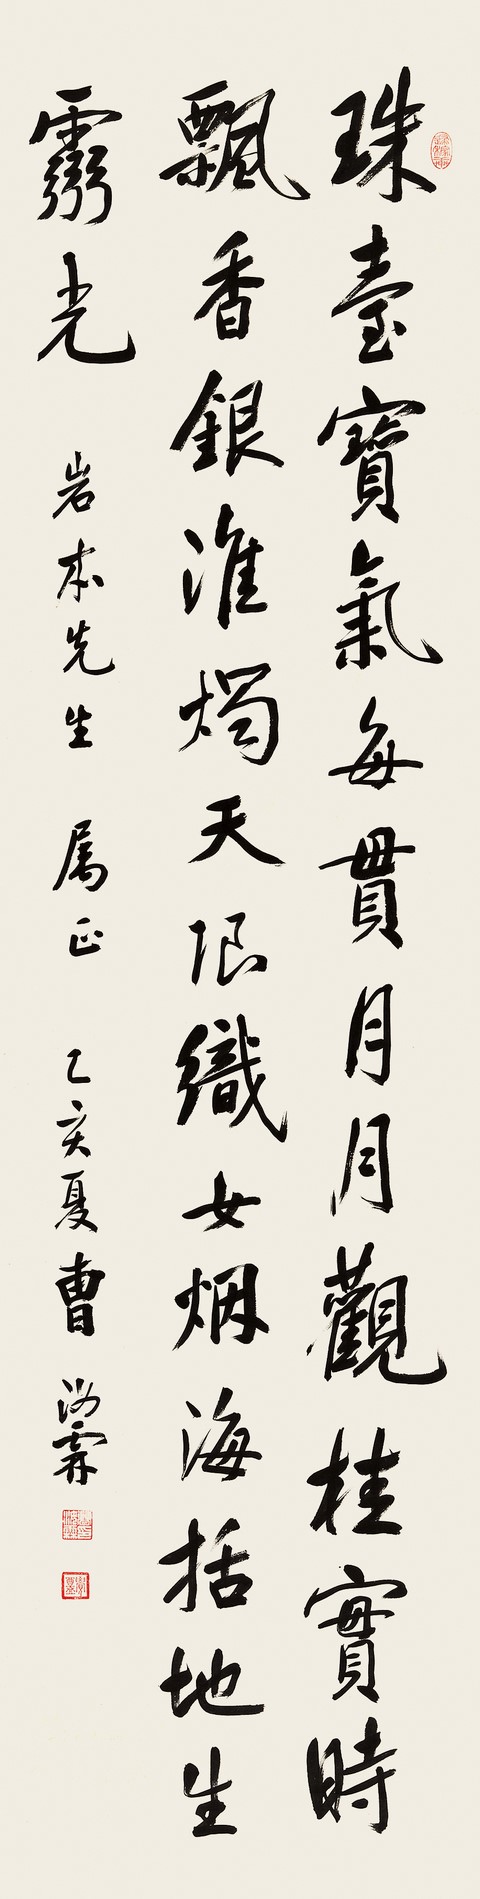 珠臺寶氣每貫月月觀桂實時
飄香銀淮燭天限織女烟海括地生
靈光 岩本先生 属正 乙亥夏曹汝霖